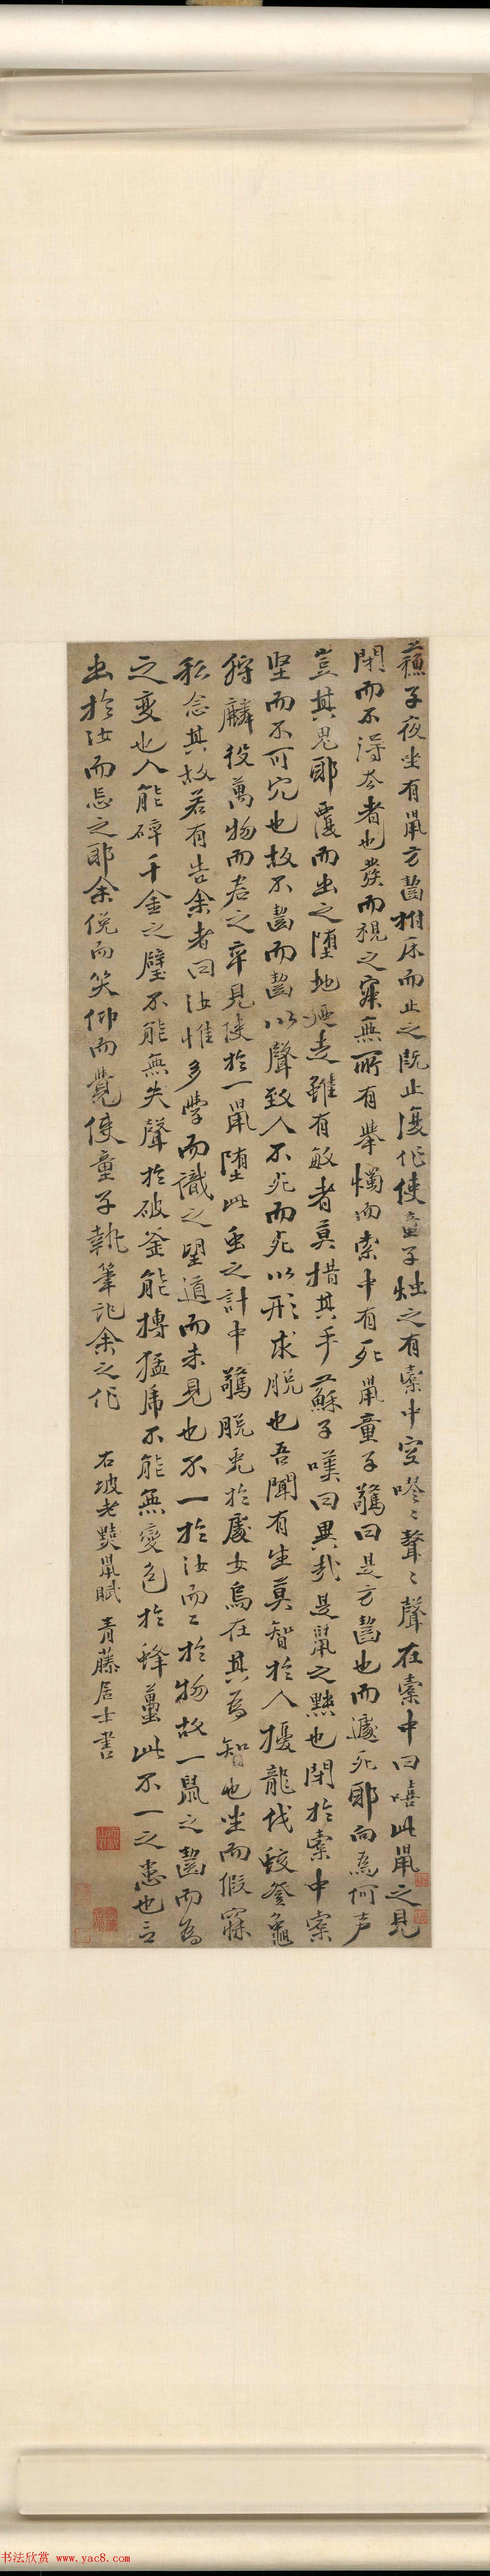 蘇子夜坐有鼠方齧拊床而止之既止復作使童子燭之有橐中空嘐〻聲〻聲在橐中曰嘻此鼠之見
閉而不得去者也發而視之寂無所有舉燭而索中有死鼠童子驚曰是方齧也而遽死耶向為何声
豈其鬼耶覆而出之墮地乃走雖有敏者莫措其手蘇子嘆曰異哉是鼠之黠也閉於橐中橐
堅而不可穴也故不齧而齧以聲致人不死而死以形求脫也吾聞有生莫智於人擾龍伐蛟登龜
狩麟役萬物而君之卒見使於一鼠墮此虫之計中驚脫兔於處女烏在其為智也坐而假寐
私念其故若有告余者曰汝惟多學而識之望道而未見也不一於汝而二於物故一鼠之齧而為
之變也人能碎千金之璧不能無失聲於破釜能搏猛虎不能無變色於蜂蠆此不一之患也言
出於汝而忘之耶余俛而笑仰而覺使童子執筆記余之作
右坡老黠鼠賦 青藤居士書
书法欣赏 www.yac8.com